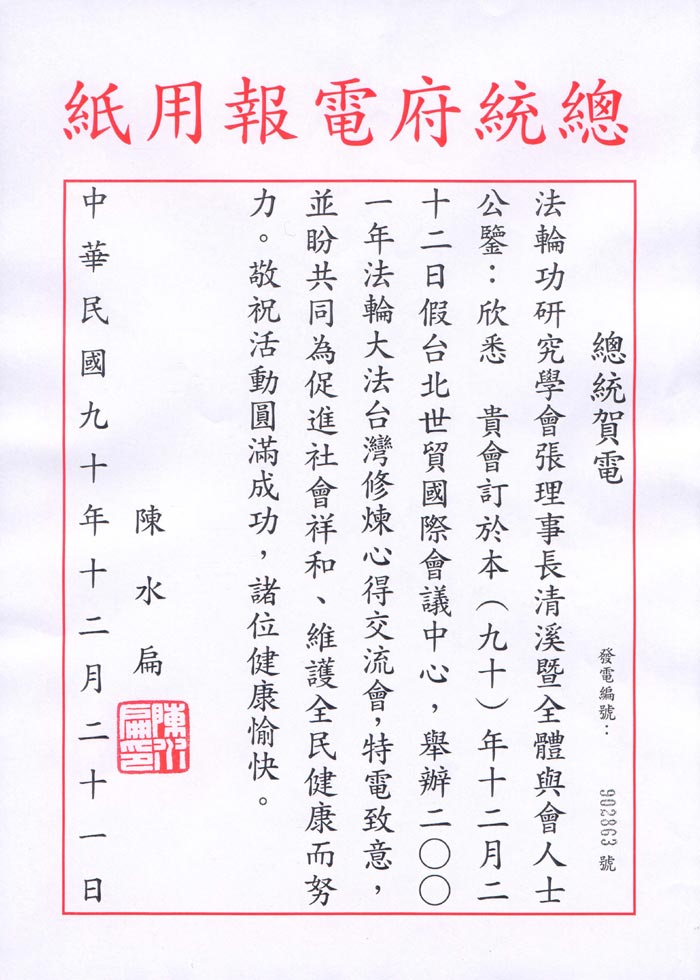 總統府電報用紙
總統賀電
發電編號： 902863 號
法輪功研究學會張理事長清溪暨全體與會人士
公鑒：欣悉　貴會訂於本（九十）年十二月二
十二日假台北世貿國際會議中心，舉辦二○○
一年法輪大法台灣修煉心得交流會，特電致意，
並盼共同為促進社會祥和、維護全民健康而努
力。敬祝活動圓滿成功，諸位健康愉快。
陳水扁
陳水扁印
中華民國九十年十二月二十一日